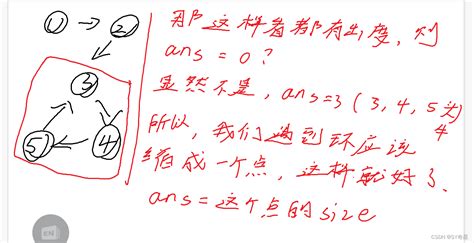 ① ②
③
⑤ ④
那这样者都有出度,则
ans = 0?
显然不是,ans=3 (3, 4, 5头)
4
所以,我们遇到环应该
缩成一个点,这样就好了.
ans=这个点的size
EN